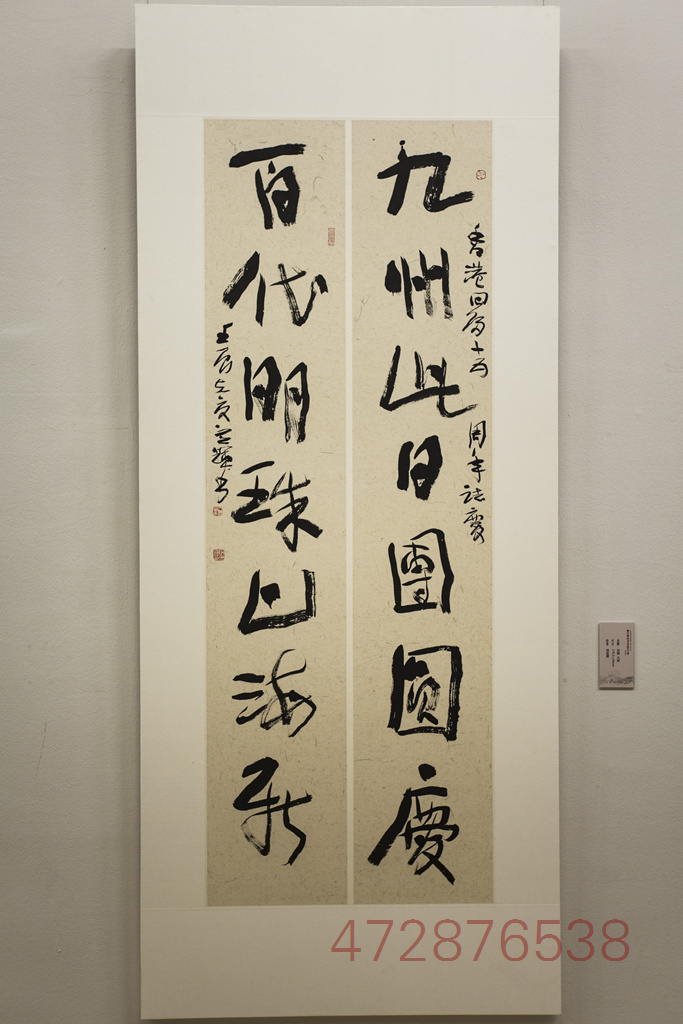 九州此日團圓慶
香港回歸十五周年誌慶
百代明珠山海新
壬辰之夏
書
472876538